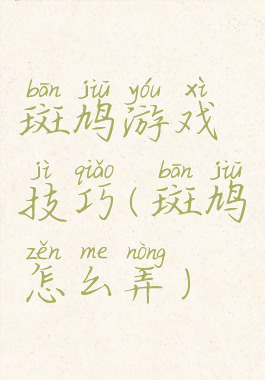 bān jiū yóu xì
斑鸠游戏
jì qiǎo bān jiū
技巧(斑鸠
zěn me nòng
怎么弄)